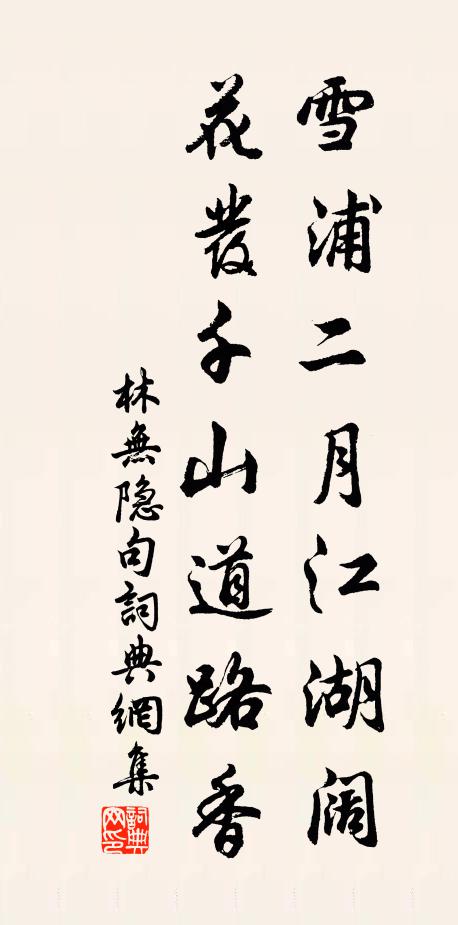 雪浦二月江湖阔
花發千山道路香
林無隐句詞典網集
詞典網印